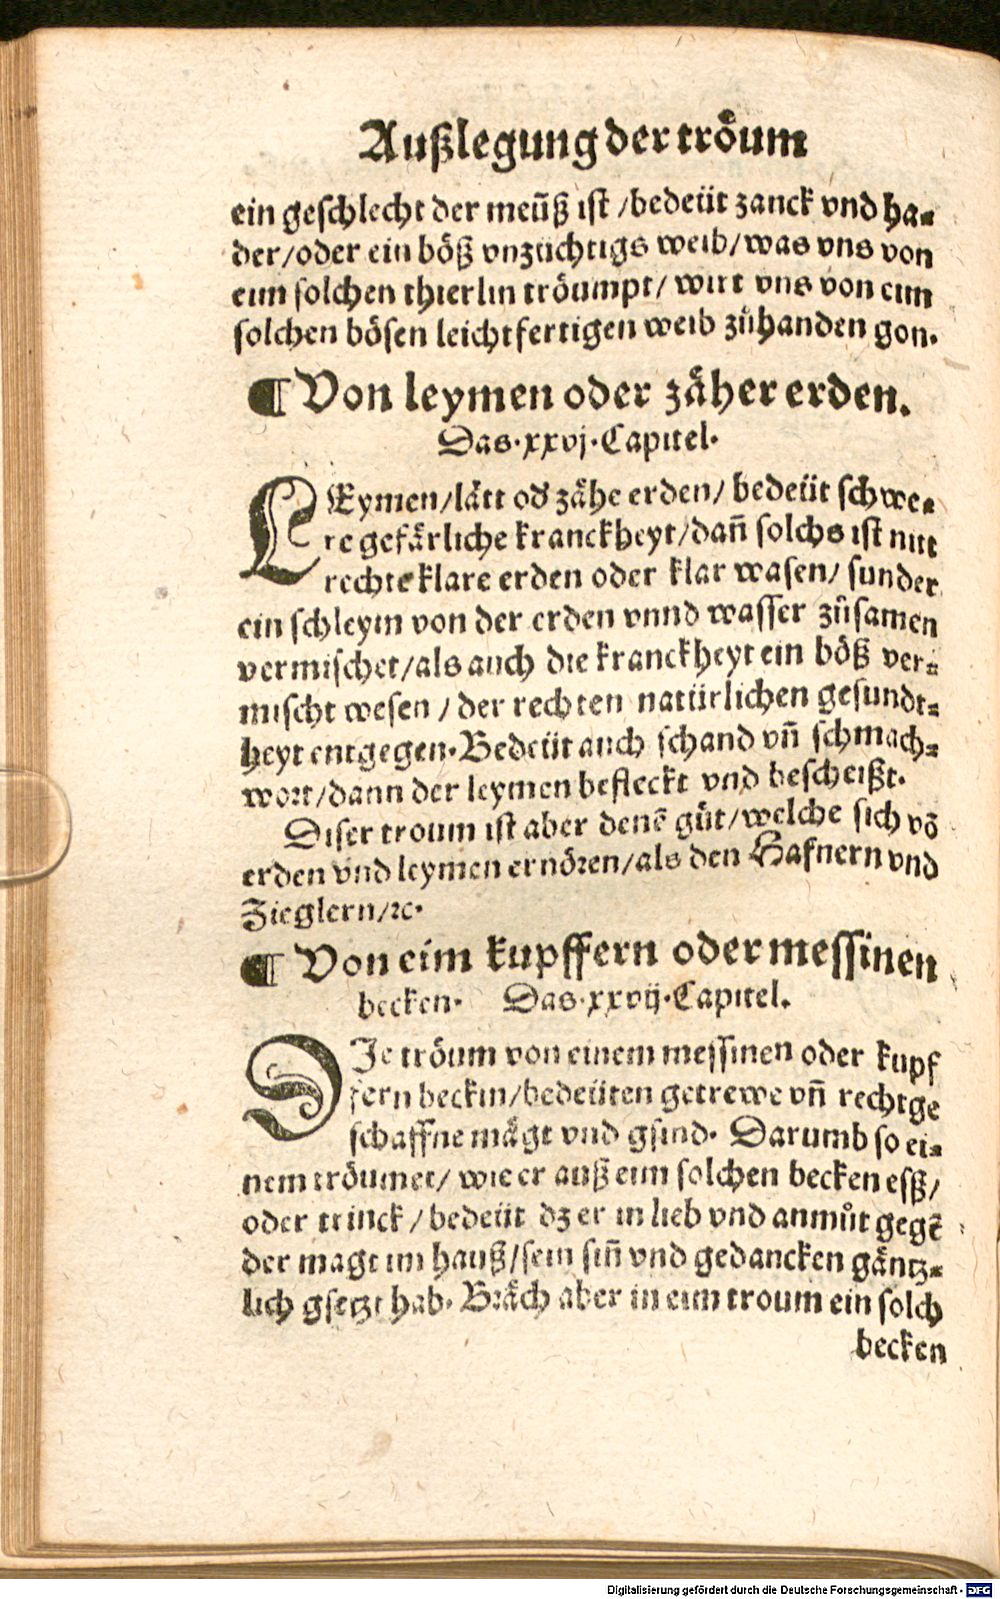 Außlegung der tröum
ein geschlecht der meüß ist / bedeüt zanck vnd ha-
der / oder ein böß vnzüchtigs weib / was vns von
eim solchen thierlin tröumpt / wirt vns von eim
solchen bösen leichtfertigen weib zůhanden gon.
¶ Von leymen oder zäher erden.
Das .xxvj. Capitel.
LEymen / lätt oď zähe erden / bedeüt schwe-
re gefärliche kranckheyt / dañ solchs ist nitt
rechte klare erden oder klar wasen / sunder
ein schleym von der erden vnnd wasser zůsamen
vermischet / als auch die kranckheyt ein böß ver-
mischt wesen / der rechten natürlichen gesundt-
heyt entgegen. Bedeüt auch schand vñ schmach-
wort / dann der leymen befleckt vnd bescheißt.
Diser troum ist aber denē gůt / welche sich võ
erden vnd leymen ernören / als den Hafnern vnd
Zieglern / ꝛc.
¶ Von eim kupffern oder messinen
becken. Das .xxvij. Capitel.
DJe tröum von einem messinen oder kupf
fern beckin / bedeüten getrewe vñ rechtge
schaffne mägt vnd gsind. Darumb so ei-
nem tröumet / wie er auß eim solchen becken esß /
oder trinck / bedeüt dz er in lieb vnd anmůt gegē
der magt im hauß / sein siñ vnd gedancken gäntz-
lich gsetzt hab. Bräch aber in eim troum ein solch
becken
Digitalisierung gefördert durch die Deutsche Forschungsgemeinschaft - DFG